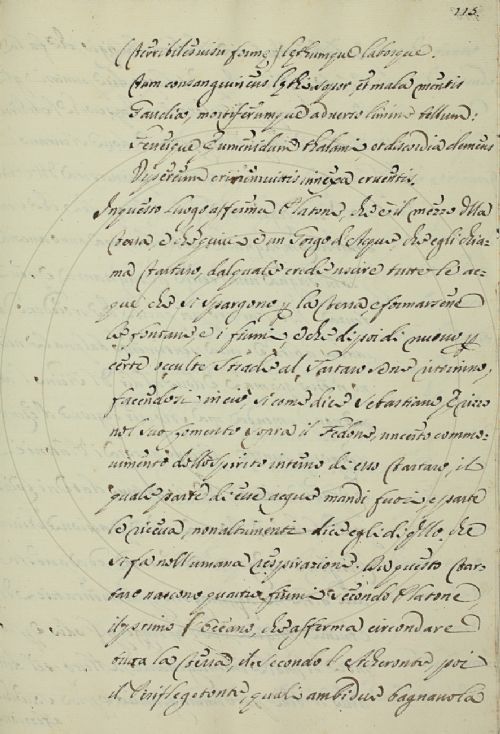 115.
(Terribiles visu forme) lethumque laborque.
Tum consanguineus lethi sopor et mala mentis
Gaudia, mortiferumque adverso limine bellum:
Ferreique Eumenidum thalami, et discordia demens
Vipereum crinem vittis innexa cruentis.
In questo luogo afferma Platone, che è il mezzo della
Terra, e che quivi è un Gorgo d'Acque che egli chia-
ma Tartaro, dal quale crede uscire tutte le ac-
que, che si spargono p la Terra, e formarsene
le fontane, e i fiumi, e che di poi di nuovo p
certe occulte strade al Tartaro se ne ritornino,
facendosi in ciò, si come dice Sebastiano Erizzo
nel suo comento sopra il Fedone, un certo commo-
vimento dello spirito interno di esso Tartaro, il
quale parte di esse acque mandi fuori e parte
le riceva, non altrimenti dice egli di qllo, che
si fa nell'umana respirazione. Da questo Tar-
taro nascono quattro fiumi secondo Platone,
il primo l'Oceano, che afferma circondare
tutta la Terra, il secondo l'Acheronte, poi
il Piriflegetonte, quali ambidue bagnano la